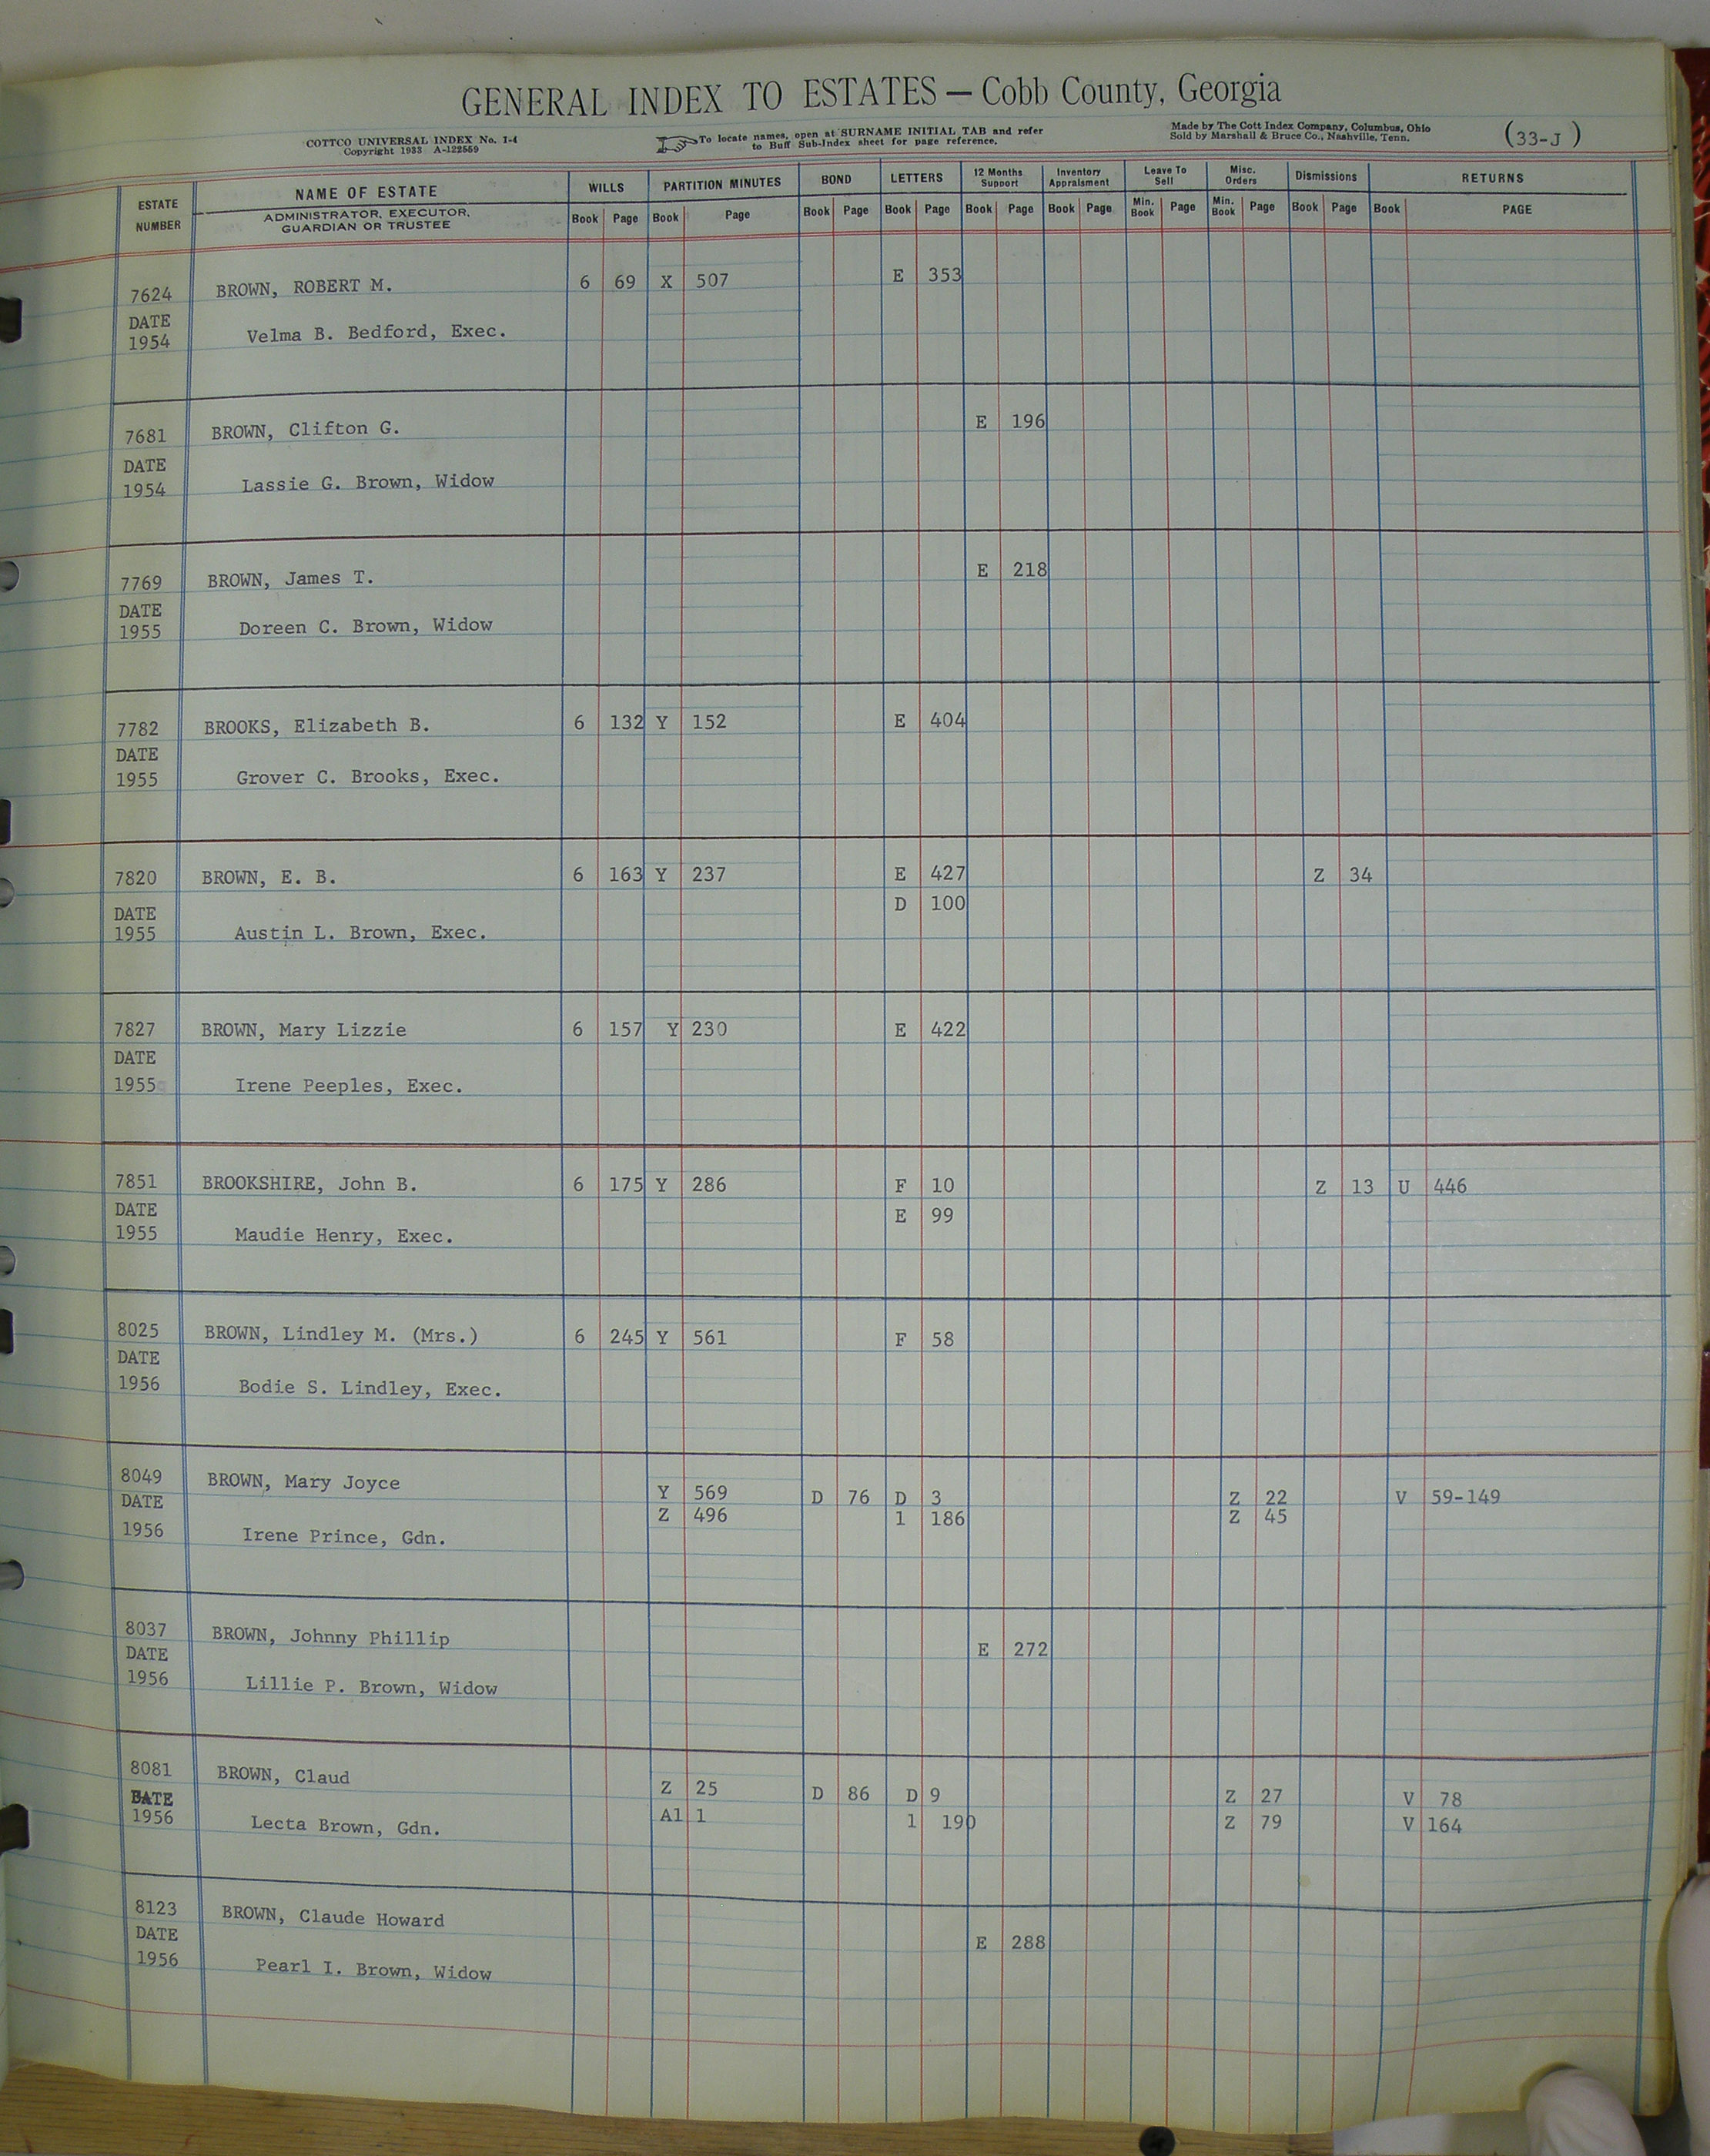 GENERAL INDEX TO ESTATES — Cobb County, Georgia
COTTCO UNIVERSAL INDEX No. 1-4
Copyright 1933 A-122559
To locate names, open at SURNAME INITIAL TAB and refer
to Buff Sub-Index sheet for page reference.
Made by The Cott Index Company, Columbus, Ohio
Sold by Marshall & Bruce Co., Nashville, Tenn.
(33-J)
ESTATE NUMBER
NAME OF ESTATE
ADMINISTRATOR, EXECUTOR,
GUARDIAN OR TRUSTEE
WILLS PARTITION MINUTES BOND LETTERS 12 Months Support Inventory Appraisment Leave To Sell Misc. Orders Dismissions RETURNS
Book Page Book Page Book Page Book Page Book Page Book Page Min. Book Page Min. Book Page Book Page Book PAGE
7624 BROWN, ROBERT M. 6 69 X 507 E 353
DATE
1954 Velma B. Bedford, Exec.
7681 BROWN, Clifton G. E 196
DATE
1954 Lassie G. Brown, Widow
7769 BROWN, James T. E 218
DATE
1955 Doreen C. Brown, Widow
7782 BROOKS, Elizabeth B. 6 132 Y 152 E 404
DATE
1955 Grover C. Brooks, Exec.
7820 BROWN, E. B. 6 163 Y 237 E 427 Z 34
DATE D 100
1955 Austin L. Brown, Exec.
7827 BROWN, Mary Lizzie 6 157 Y 230 E 422
DATE
1955 Irene Peeples, Exec.
7851 BROOKSHIRE, John B. 6 175 Y 286 F 10 Z 13 U 446
DATE E 99
1955 Maudie Henry, Exec.
8025 BROWN, Lindley M. (Mrs.) 6 245 Y 561 F 58
DATE
1956 Bodie S. Lindley, Exec.
8049 BROWN, Mary Joyce Y 569 D 76 D 3 Z 22 V 59-149
DATE Z 496 1 186 Z 45
1956 Irene Prince, Gdn.
8037 BROWN, Johnny Phillip E 272
DATE
1956 Lillie P. Brown, Widow
8081 BROWN, Claud Z 25 D 86 D 9 Z 27 V 78
DATE A1 1 1 190 Z 79 V 164
1956 Lecta Brown, Gdn.
8123 BROWN, Claude Howard E 288
DATE
1956 Pearl I. Brown, Widow